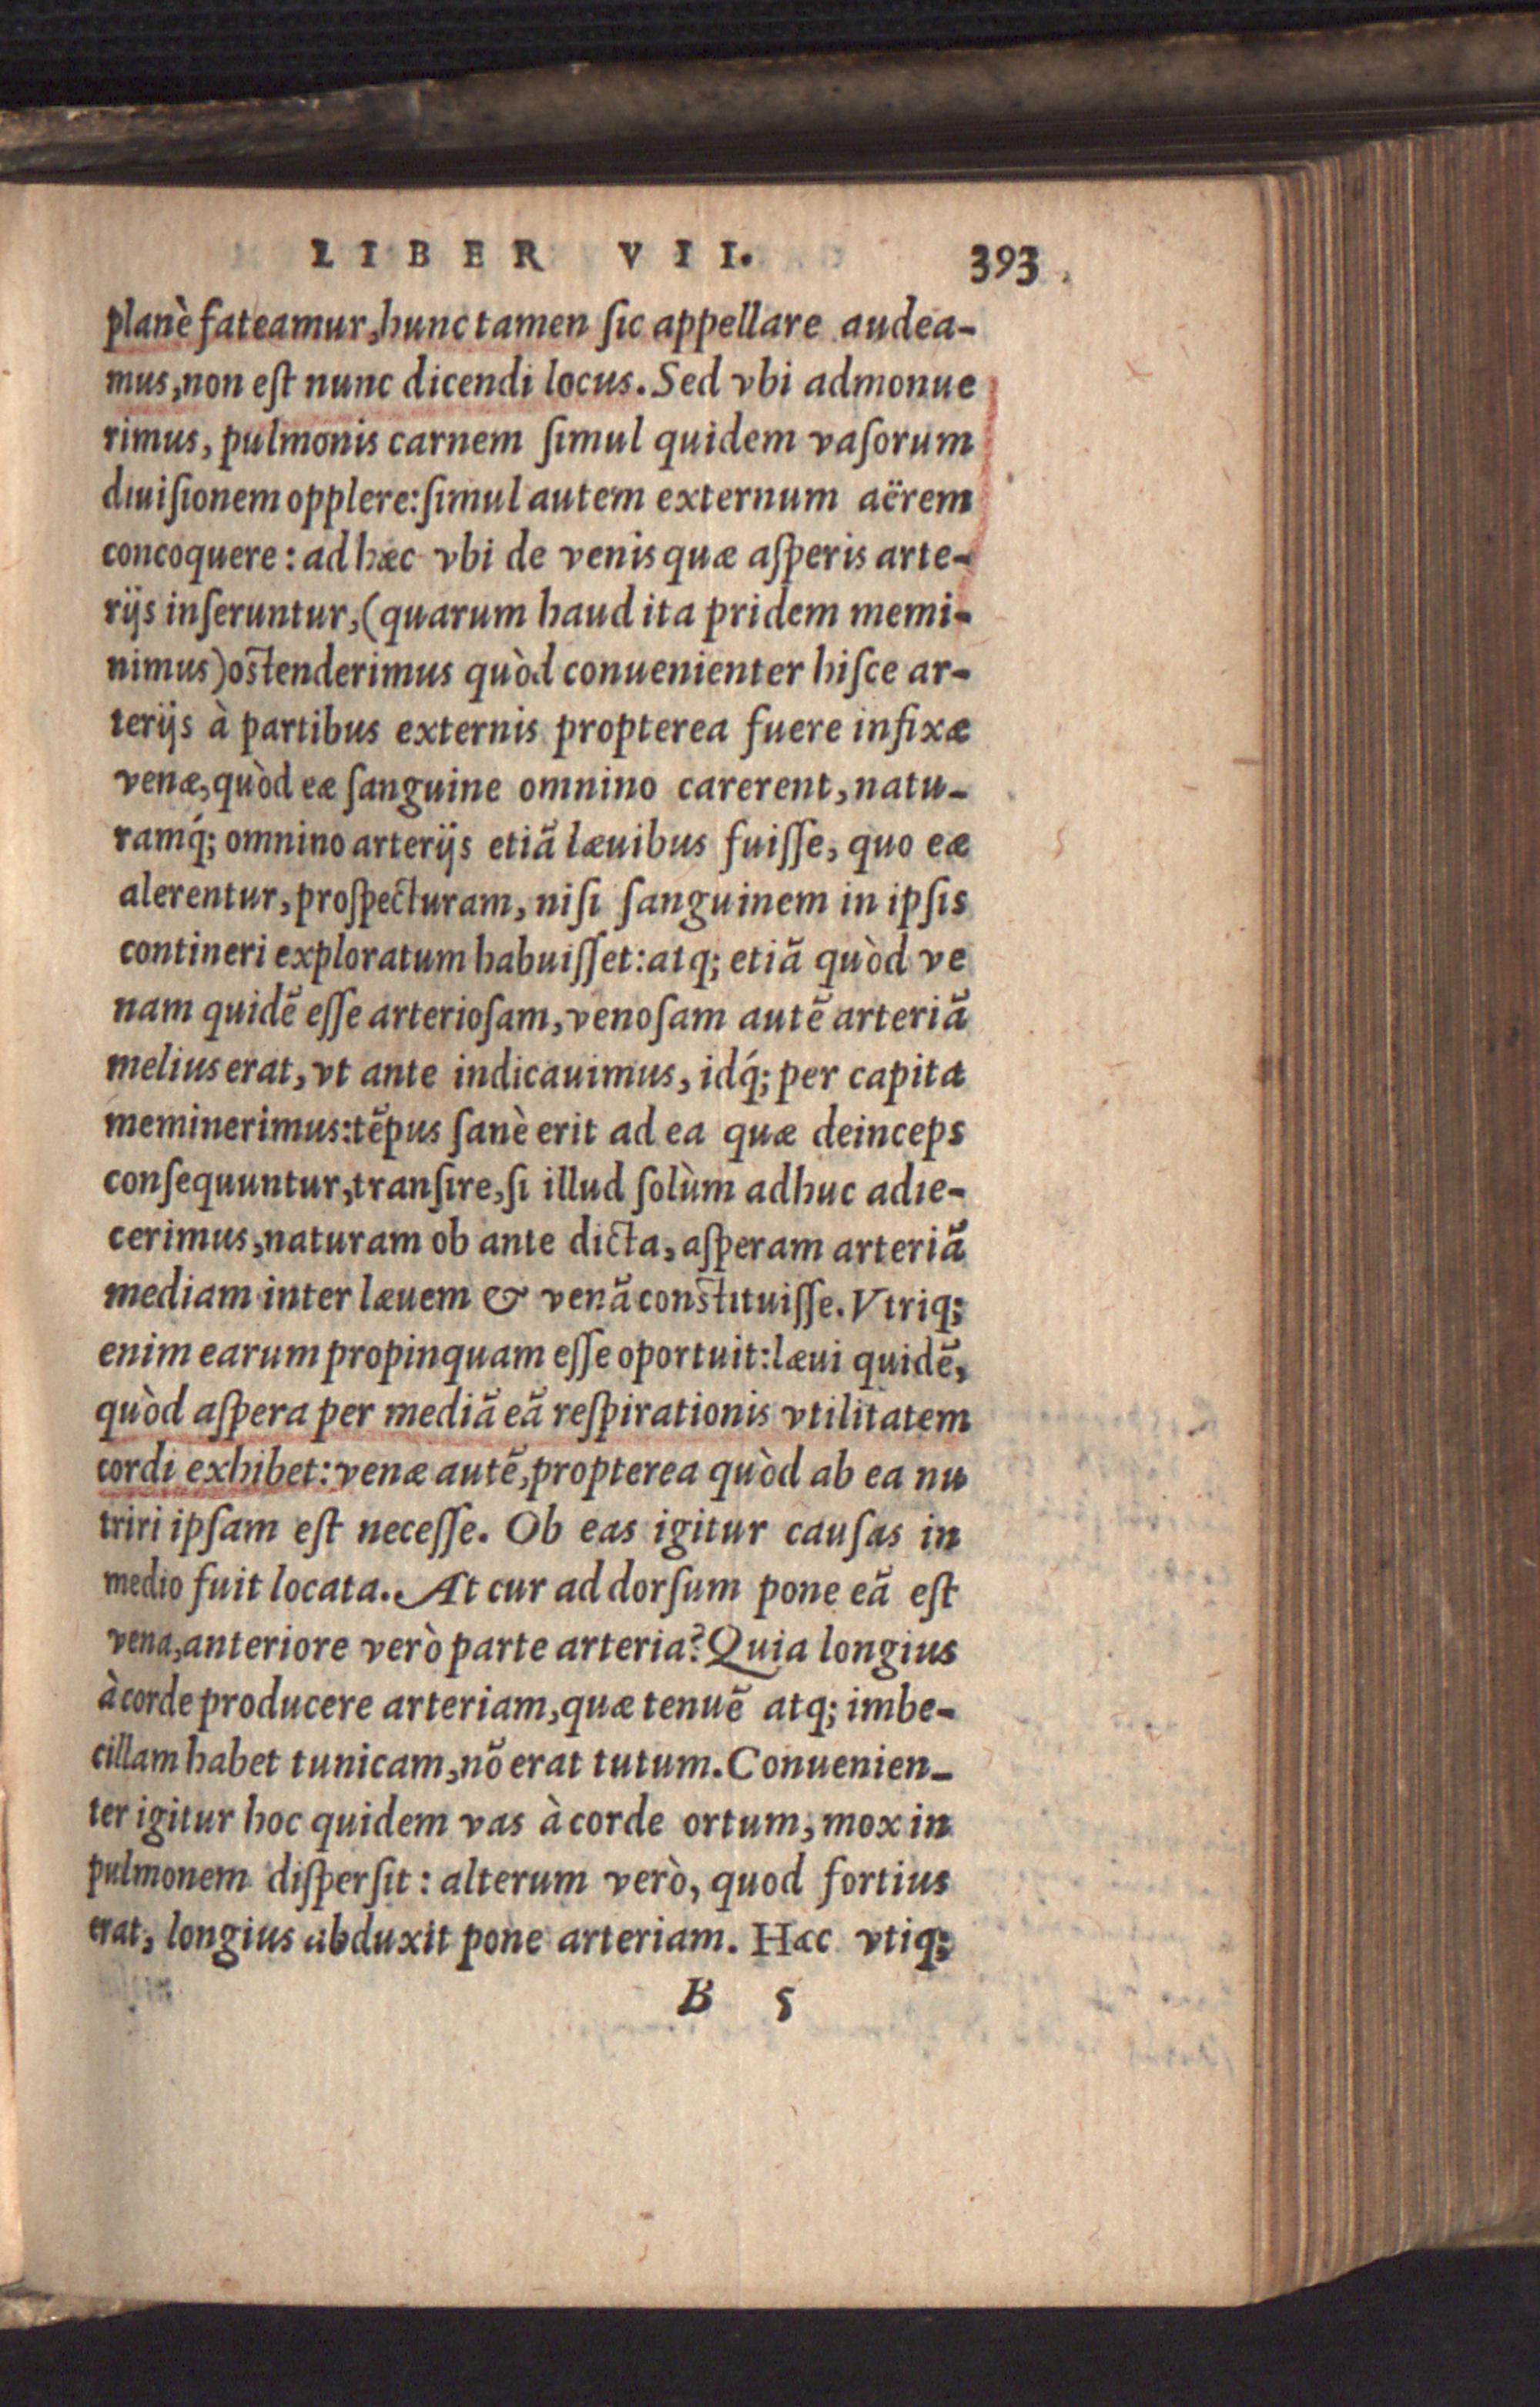 LIBER VII. 393
planè fateamur, hunc tamen ſic appellare audea-
mus, non eſt nunc dicendi locus. Sed vbi admonue
rimus, pulmonis carnem ſimul quidem vaſorum
diuiſionem opplere: ſimul autem externum aërem
concoquere: ad hæc vbi de venis quæ aſperis arte-
rijs inſeruntur, (quarum haud ita pridem memi-
nimus) oſtenderimus quòd conuenienter hiſce ar-
terijs à partibus externis propterea fuere infixæ
venæ, quòd eæ ſanguine omnino carerent, natu-
ramq́; omnino arterijs etiã læuibus fuiſſe, quo eæ
alerentur, proſpecturam, niſi ſanguinem in ipſis
contineri exploratum habuiſſet: atq; etiã quòd ve
nam quidẽ eſſe arterioſam, venoſam autẽ arteriã
melius erat, vt ante indicauimus, idq́; per capita
meminerimus: tẽpus ſanè erit ad ea quæ deinceps
conſequuntur, tranſire, ſi illud ſolùm adhuc adie-
cerimus, naturam ob ante dicta, aſperam arteriã
mediam inter læuem & venã conſtituiſſe. Vtriq;
enim earum propinquam eſſe oportuit: læui quidẽ,
quòd aſpera per mediã eã reſpirationis vtilitatem
cordi exhibet: venæ autẽ, propterea quòd ab ea nu
triri ipſam eſt neceſſe. Ob eas igitur cauſas in
medio fuit locata. At cur ad dorſum pone eã eſt
vena, anteriore verò parte arteria? Quia longius
à corde producere arteriam, quæ tenuẽ atq; imbe-
cillam habet tunicam, nõ erat tutum. Conuenien-
ter igitur hoc quidem vas à corde ortum, mox in
pulmonem diſperſit: alterum verò, quod fortius
erat, longius abduxit pone arteriam. Hæc vtiq;
B 5